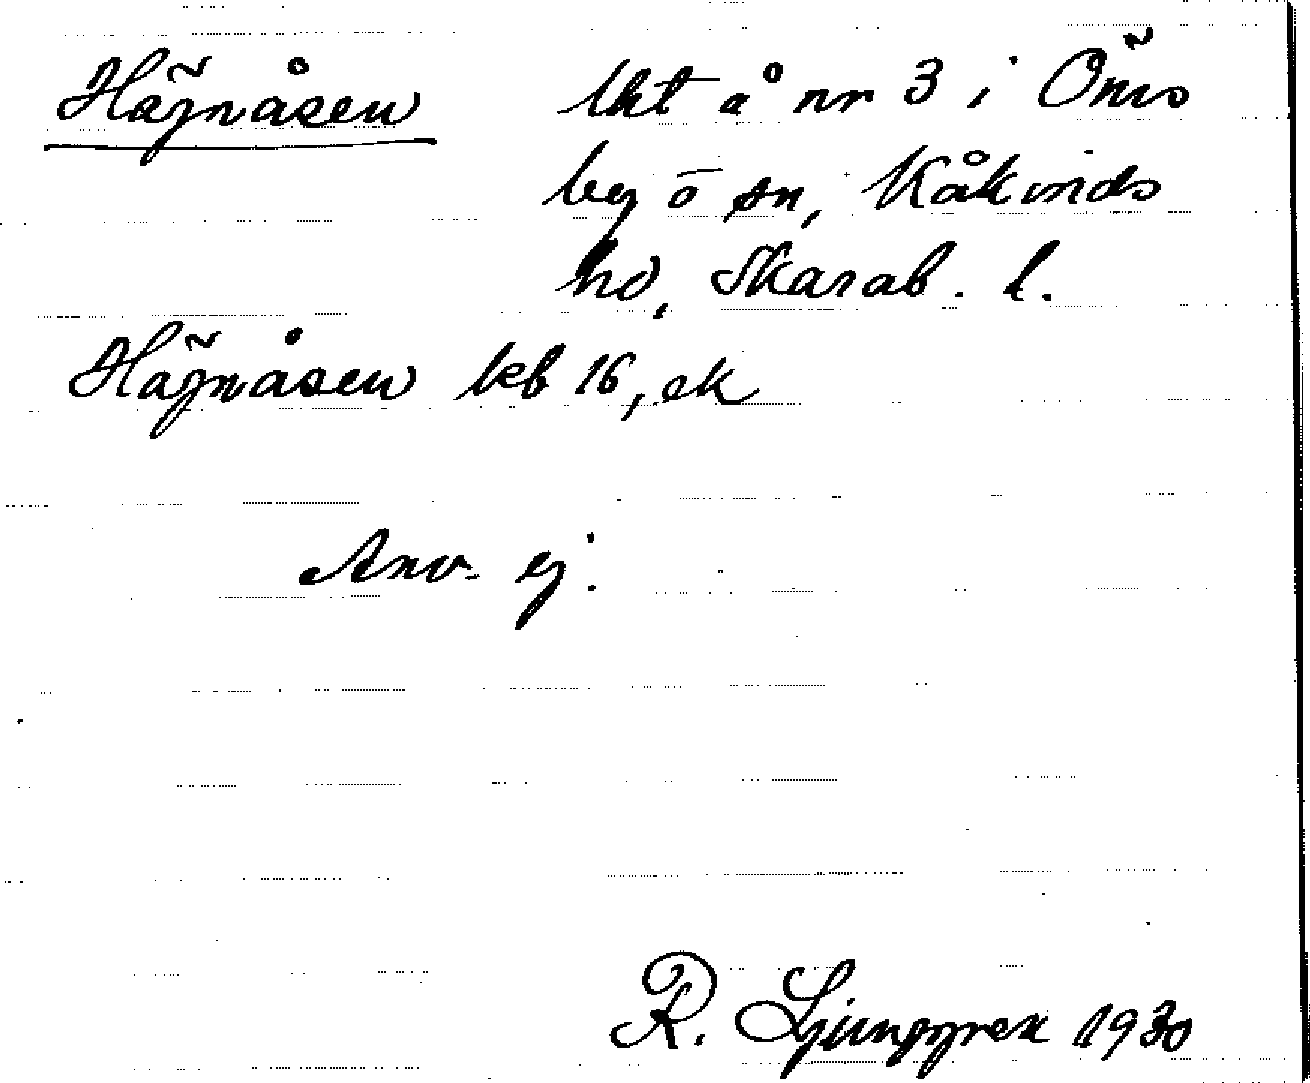 Häjnåsen lht å nr 3 i Öms
by o sn, Kåkinds
hd, Skarab. l.
Häjnåsen kb 16, ek
Anv. ej.
R. Ljunggren 1930